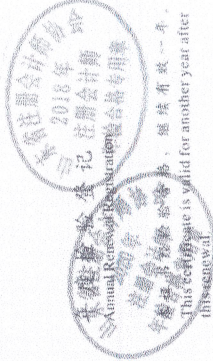 年度检验登记
Annual Renewal Registration
本证书经检验合格，继续有效一年。
This certificate is valid for another year after
this renewal.
注册会计师协会
2018 年
注册会计师
年检合格专用章
注册会计师协会
2020 年
注册会计师
年检合格专用章